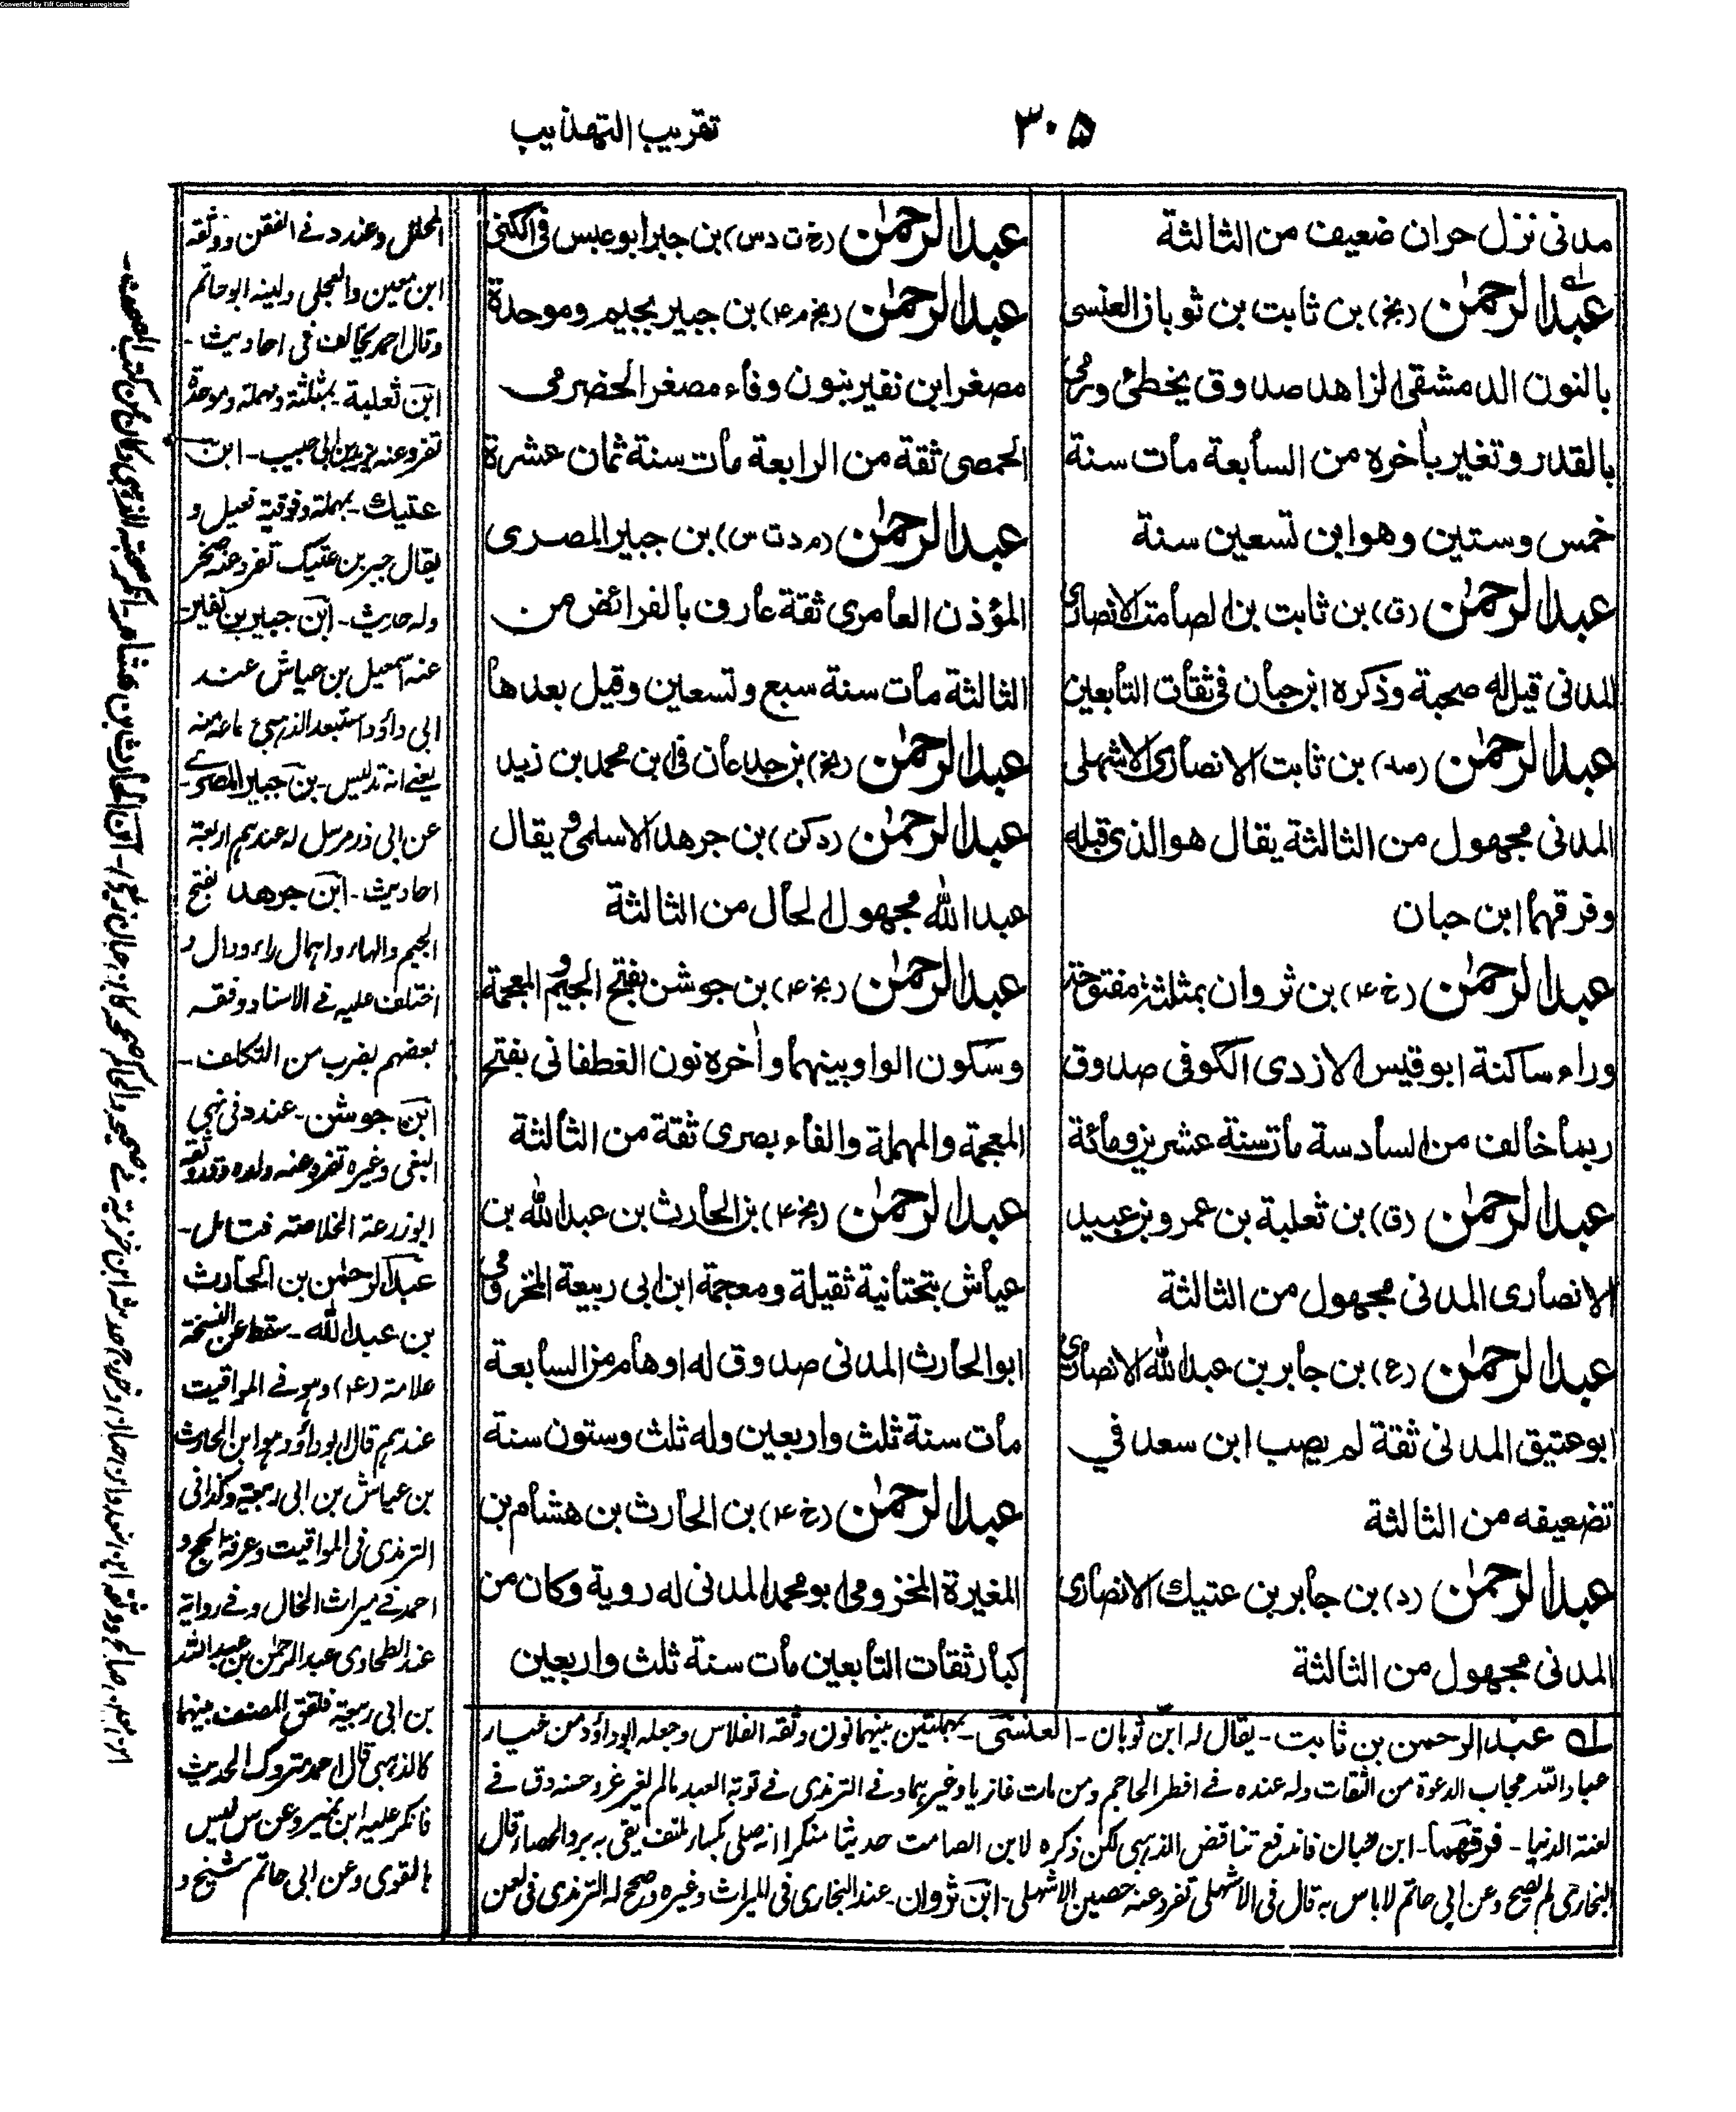 Converted by Tiff Combine - unregistered
٣٠٥
تقريب التهذيب
مدنى نزل حران ضعيف من الثالثة
عبد الرحمٰن (بخ) بن ثابت بن ثوبان العنسى
بالنون الدمشقى الزاهد صدوق يخطئ ورمى
بالقدر وتغير بأخره من السابعة مات سنة
خمس وستين وهو ابن تسعين سنة
عبد الرحمٰن (ق) بن ثابت بن الصامت الانصارى
المدنى قيل له صحبة وذكره ابن حبان فى ثقات التابعين
عبد الرحمٰن (مد) بن ثابت الانصارى الاشهلى
المدنى مجهول من الثالثة يقال هو الذى قبله
وفرقهما ابن حبان
عبد الرحمٰن (خ ۴) بن ثروان بمثلثة مفتوحة
وراء ساكنة ابو قيس الازدى الكوفى صدوق
ربما خالف من السادسة مات سنة عشرين ومائة
عبد الرحمٰن (ق) بن ثعلبة بن عمرو بن عبيد
الانصارى المدنى مجهول من الثالثة
عبد الرحمٰن (ع) بن جابر بن عبد الله الانصارى
ابو عتيق المدنى ثقة لم يصب ابن سعد في
تضعيفه من الثالثة
عبد الرحمٰن (د) بن جابر بن عتيك الانصارى
المدنى مجهول من الثالثة
عبد الرحمٰن (خ ت د س) بن جبر ابو عبس فى الكنى
عبد الرحمٰن (بخ م ۴) بن جبير بجيم وموحدة
مصغر ابن نفير بنون وفاء مصغر الحضرمى
الحمصى ثقة من الرابعة مات سنة ثمان عشرة
عبد الرحمٰن (م د ت س) بن جبير المصرى
المؤذن العامرى ثقة عارف بالفرائض من
الثالثة مات سنة سبع وتسعين وقيل بعدها
عبد الرحمٰن (بخ) بن جدعان فى ابن محمد بن زيد
عبد الرحمٰن (د كن) بن جرهد الاسلمى ويقال
عبد الله مجهول الحال من الثالثة
عبد الرحمٰن (بخ ۴) بن جوشن بفتح الجيم والمعجمة
وسكون الواو بينهما وأخره نون الغطفانى بفتح
المعجمة والمهملة والفاء بصرى ثقة من الثالثة
عبد الرحمٰن (بخ ۴) بن الحارث بن عبد الله بن
عياش بتحتانية ثقيلة ومعجمة ابن ابى ربيعة المخزومى
ابو الحارث المدنى صدوق له اوهام من السابعة
مات سنة ثلث واربعين وله ثلث وستون سنة
عبد الرحمٰن (خ ۴) بن الحارث بن هشام بن
المغيرة المخزومى ابو محمد المدنى له روية وكان من
كبار ثقات التابعين مات سنة ثلث واربعين
عبد الرحمن بن ثابت - يقال له ابن ثوبان - العنسى - بمهملتين بينهما نون وثقه الفلاس وجعله ابو داؤد من خيار
عباد الله مجاب الدعوة من الثقات وله عنده في افطر الحاجم ومن مات غازيا وغيرهما وفي الترمذى في توبة العبد مالم يغرغر وحسنه و ق في
لعنة الدنيا - فرقهما - ابن حبان فاندفع تناقض الذهبى لكن ذكره لابن الصامت حديثا منكرا انه صلى بكساء ملتف يقى به برد الحصاء قال
البخارى لم يصح وعن ابى حاتم لا باس به قال فى الاشهلى تفرد عنه حصين الاشهلى - ابن ثروان - عند البخارى فى الميراث وغيره وصحح له الترمذى فى لعن
المحلل وعند د في ووثقه
ابن معين والعجلى ولينه ابو حاتم
وقال احمد يخالف فى احاديث -
ابن ثعلبة - بمثلثة ومهملة وموحدة
تفرد عنه يزيد بن ابى حبيب - ابن
عتيك - بمهملة وفوقية فعيل و
يقال جبر بن عتيك تفرد عنه صخر
وله حديث - ابن جبير بن نفير -
عنه اسمعيل بن عياش عند
ابى داؤد استبعد الذهبى سماعه منه
يعنى انه تدليس - بن جبير المصرى -
عن ابى ذر مرسل له عندهم اربعة
احاديث - ابن جرهد بفتح
الجيم والهاء واهمال راء ودال و
اختلف عليه في الاسناد وفقه
بعضهم بضرب من التكلف -
ابن جوشن - عند د فى نهى
البغى وغيره تفرد عنه ولده وقد وثقه
ابو زرعة الخلاصة فتامل -
عبد الرحمٰن بن الحارث
بن عبد الله - سقط عن النسخة
علامة (۴) وهو في المواقيت
عندهم قال ابو داؤد هو ابن الحارث
بن عياش بن ابى ربيعة وكذا فى
الترمذى فى المواقيت وعرفة الحج و
احمد في ميراث الخال وفي رواية
عند الطحاوى عبد الرحمٰن بن عبد الله
بن ابى ربيعة فلفق المصنف بينهما
كالذهبى قال احمد متروك الحديث
فانكر عليه ابن نمير وعن س ليس
بالقوى وعن ابى حاتم شيخ و